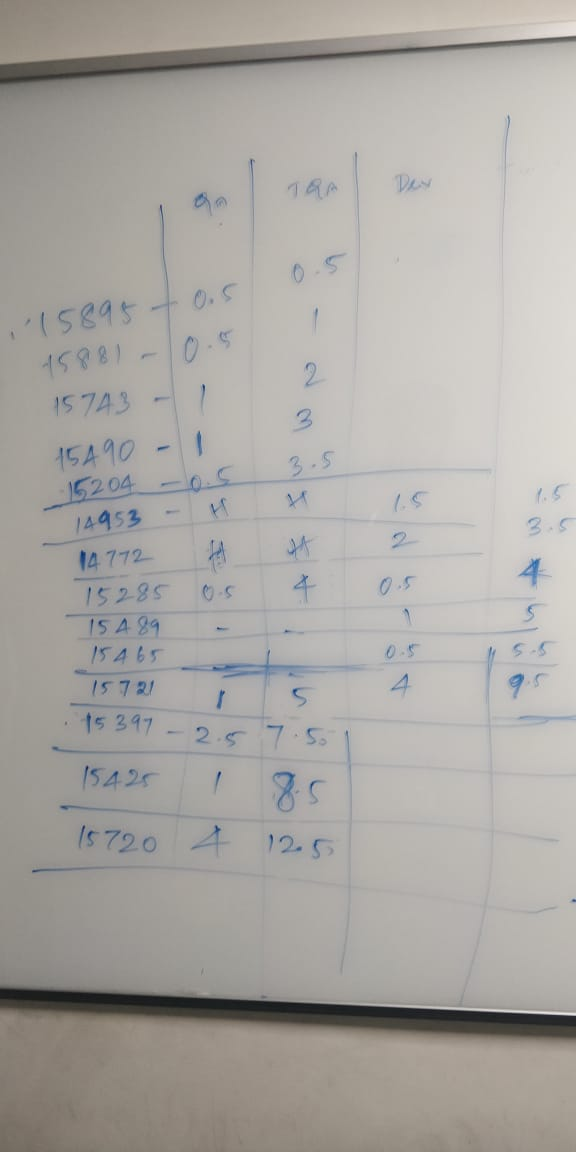 Qa TQA Dev
15895 - 0.5 0.5
15881 - 0.5 1
15743 - 1 2
15490 - 1 3
15204 - 0.5 3.5
14953 - H H 1.5 1.5
14772 H H 2 3.5
15285 0.5 4 0.5 4
15489 - - 1 5
15465 0.5 5.5
15721 1 5 4 9.5
15397 - 2.5 7.5
15425 1 8.5
15720 4 12.5